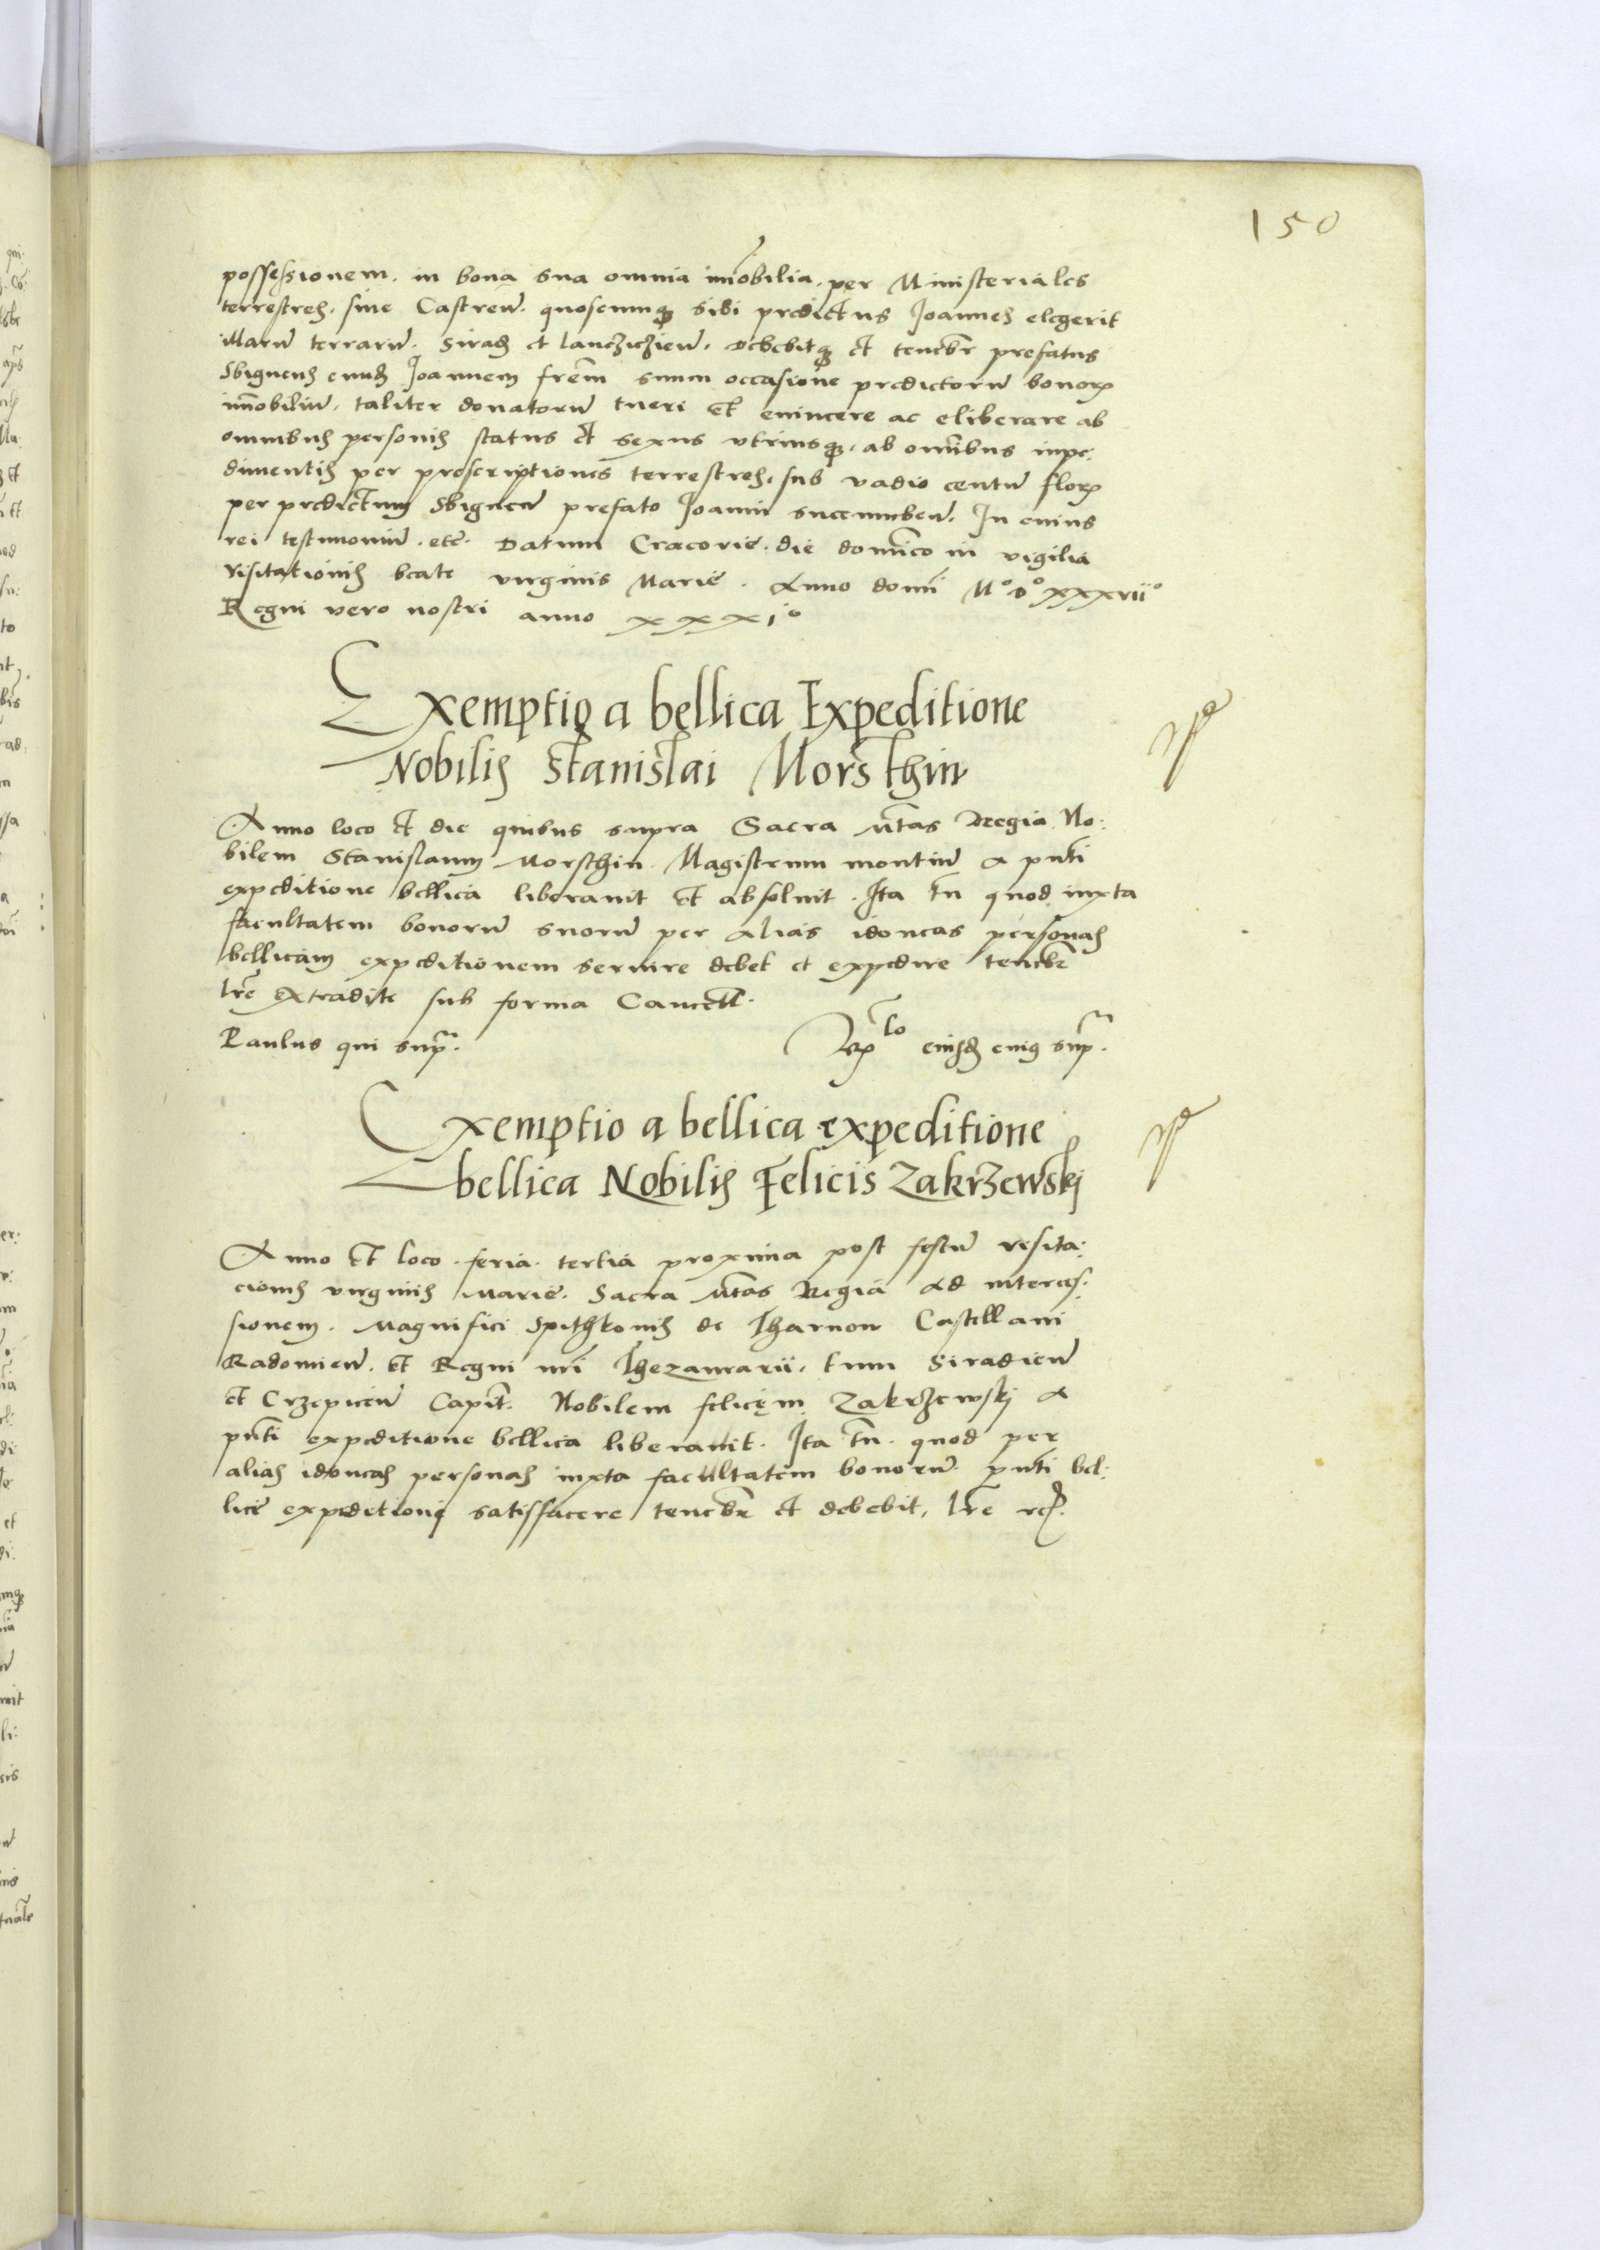 150
possessionem. in bona sua omnia im̄obilia. per Ministeriales
terrestres. siue Castren̄. quoscumq3 sibi predictus Joannes elegerit
illarum̄ terrarum̄. Sirad̄ et lanczicien̄. Debebitq3 et tenebr̄ prefatus
Sbigneus eundē Joannem frēm suum occasione predictorum̄ bonorꝝ
im̄obilium̄. taliter donatorum̄ tueri et euincere ac eliberare ab
omnibus personis status et sexus vtriusq3. ab om̄ibus inpe:
dimentis per proscriptiones terrestres. sub vadio centum̄ florꝝ
per predictum Sbigneum̄ prefato Joanni succumben̄. In cuius
rei testimonium̄. etc̄. Datum Cracovie. die domīco in vigilia
Visitationis beate virginis Marie. Anno domī M° D° xxxvii°
Regni vero nostri anno xxxi°
Exemptio a bellica Expeditione
Nobilis Stanislai Morsthin
Anno loco et die quibus supra Sacra Mtas Regia No:
bilem Stanislaum Morsthin Magistrum montium̄ a pn̄ti
expeditione bellica liberauit et absoluit. Ita tn̄ quod iuxta
facultatem bonorum̄ suorum̄ per alias idoneas personas
bellicam expeditionem seruire debet et expedire tenebr̄
lrē extradite sub forma Cancell̄.
Paulus qui supr̄.
Rel̄o eiusdē cuius supr̄.
Exemptio a bellica expeditione
bellica Nobilis Felicis Zakrzewskj
Anno et loco. feria. tertia proxima post festum̄ visita:
cionis virginis Marie. Sacra Mtas Regia ad interces:
sionem. Magnifici Spithkonis de Tharnow Castellani
Radomien̄. et Regni nrī Thezaurarii. tum Siradien̄
et Crzepicen̄ Capit̄. Nobilem felicem Zakrzewskj a
pn̄ti expeditione bellica liberauit. Ita tn̄. quod per
alias idoneas personas iuxta facultatem bonorum̄ pn̄ti bel:
lice expeditioni satisfacere tenebr̄ et debebit, lrē